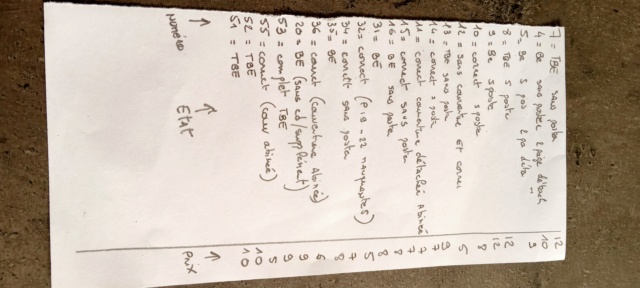 7 = TBE sans poster 12
4 = Be sans poster 2 page détach 10
5 = Be S pos 2 pa déta 9
8 = TBE S poster 12
9 = Be S poste 12
10 = correct S poster 8
12 = sans couverture et corner 5
13 = TBe sans poster 9
14 = correct S poster 7
11 = correct couverture détachée Abimée 7
15 = correct sans poster 8
16 = BE sans poster 8
31 = BE 5
32 = correct (P 19 - 22 manquantes) 8
34 = correct sans poster 7
35 = BE 8
36 = correct (couverture Abimée) 6
20 = BE (sans cd/supplément) 9
53 = complet TBE 9
55 = correct (couv abimée) 5
52 = TBE 10
51 = TBE 10
Numéro Etat Prix